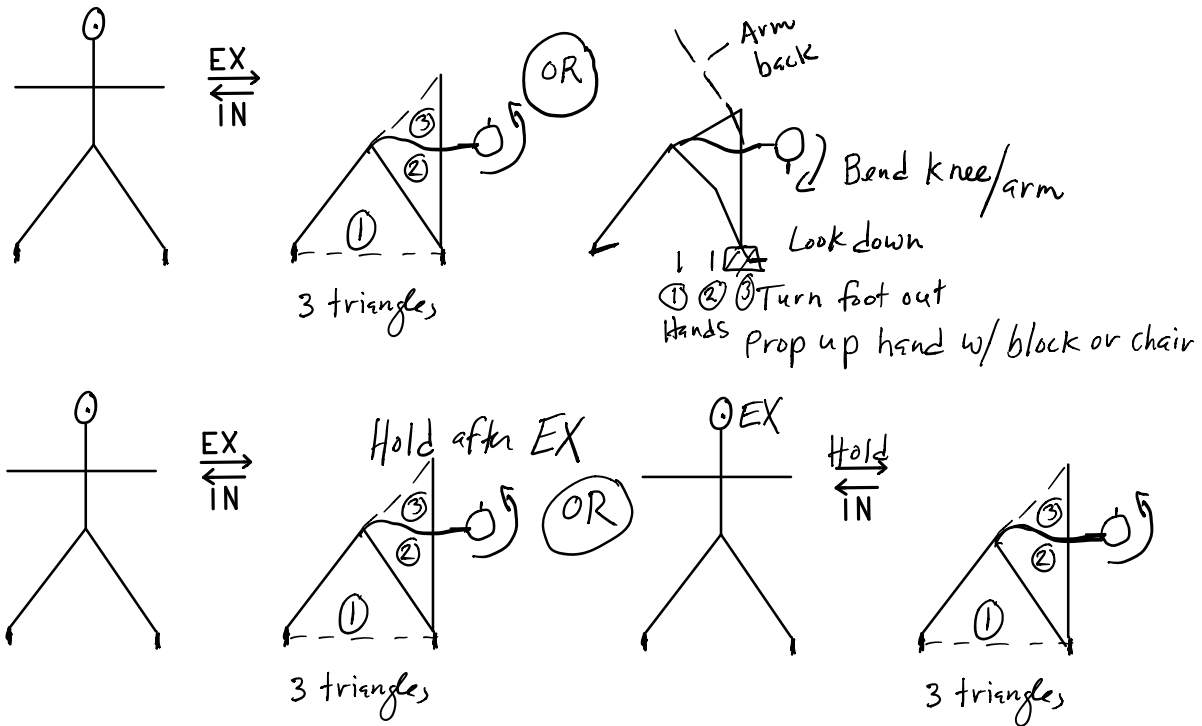 EX
IN
③
②
①
3 triangles
OR
Arm
back
Bend knee/arm
Look down
① ② ③ Turn foot out
Hands
Prop up hand w/ block or chair
EX
IN
Hold after EX
③
②
①
3 triangles
OR
EX
Hold
IN
③
②
①
3 triangles